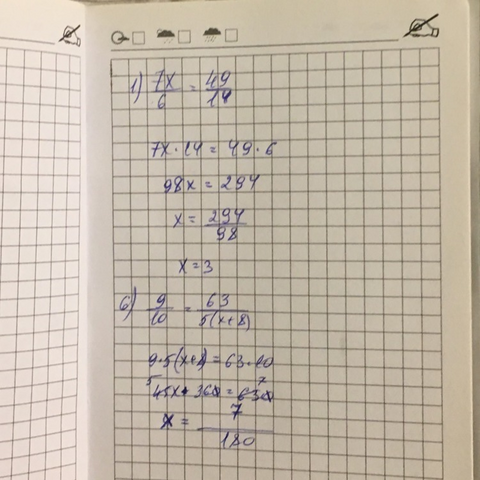 1) 7x/6 = 49/14
7x · 14 = 49 · 6
98x = 294
x = 294/98
x = 3
6) 9/10 = 63/5(x+8)
9·5(x+8) = 63·10
5 45x + 360 = 630 7
x = 7/180